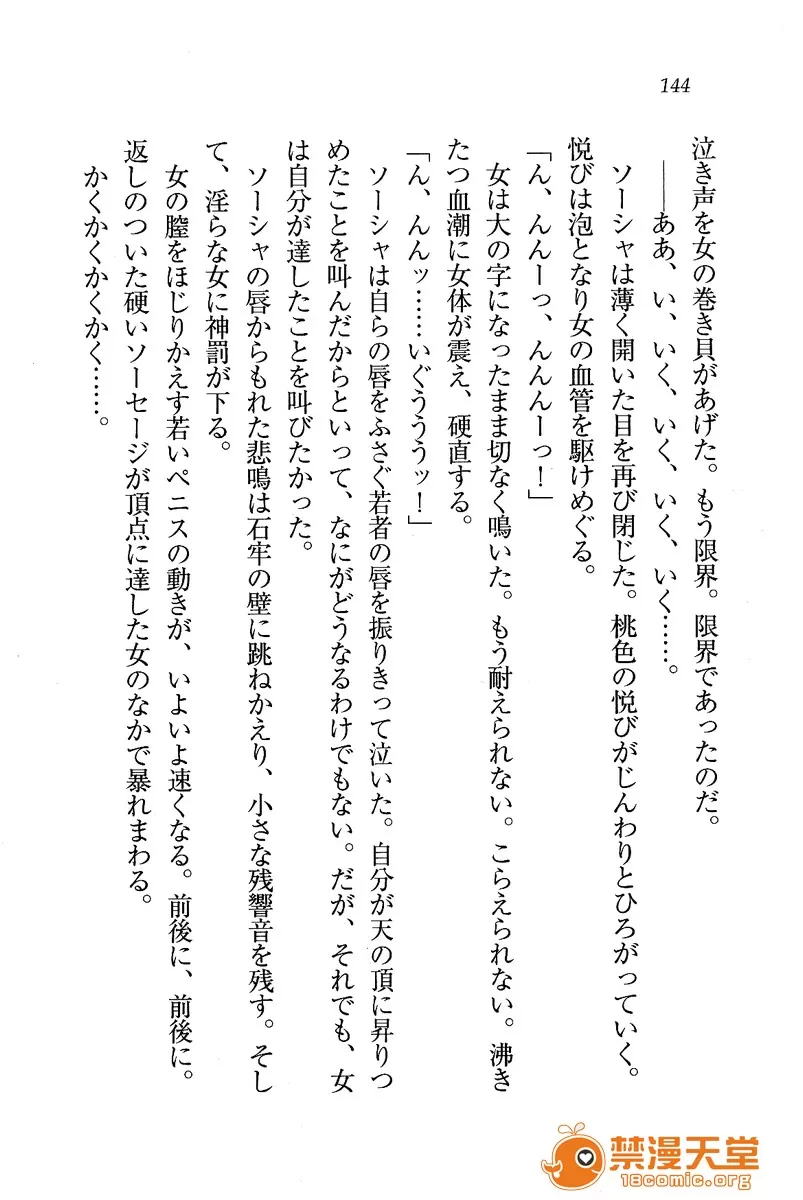 144
泣き声を女の巻き貝があげた。もう限界。限界であったのだ。
――ああ、い、いく、いく、いく、いく……。
ソーシャは薄く開いた目を再び閉じた。桃色の悦びがじんわりとひろがっていく。
悦びは泡となり女の血管を駆けめぐる。
「ん、んんーっ、んんんーっ！」
女は大の字になったまま切なく鳴いた。もう耐えられない。こらえられない。沸き
たつ血潮に女体が震え、硬直する。
「ん、んんッ……いぐううぅッ！」
ソーシャは自らの唇をふさぐ若者の唇を振りきって泣いた。自分が天の頂に昇りつ
めたことを叫んだからといって、なにがどうなるわけでもない。だが、それでも、女
は自分が達したことを叫びたかった。
ソーシャの唇からもれた悲鳴は石牢の壁に跳ねかえり、小さな残響音を残す。そし
て、淫らな女に神罰が下る。
女の膣をほじりかえす若いペニスの動きが、いよいよ速くなる。前後に、前後に。
返しのついた硬いソーセージが頂点に達した女のなかで暴れまわる。
かくかくかくかく……。
禁漫天堂
18comic.org